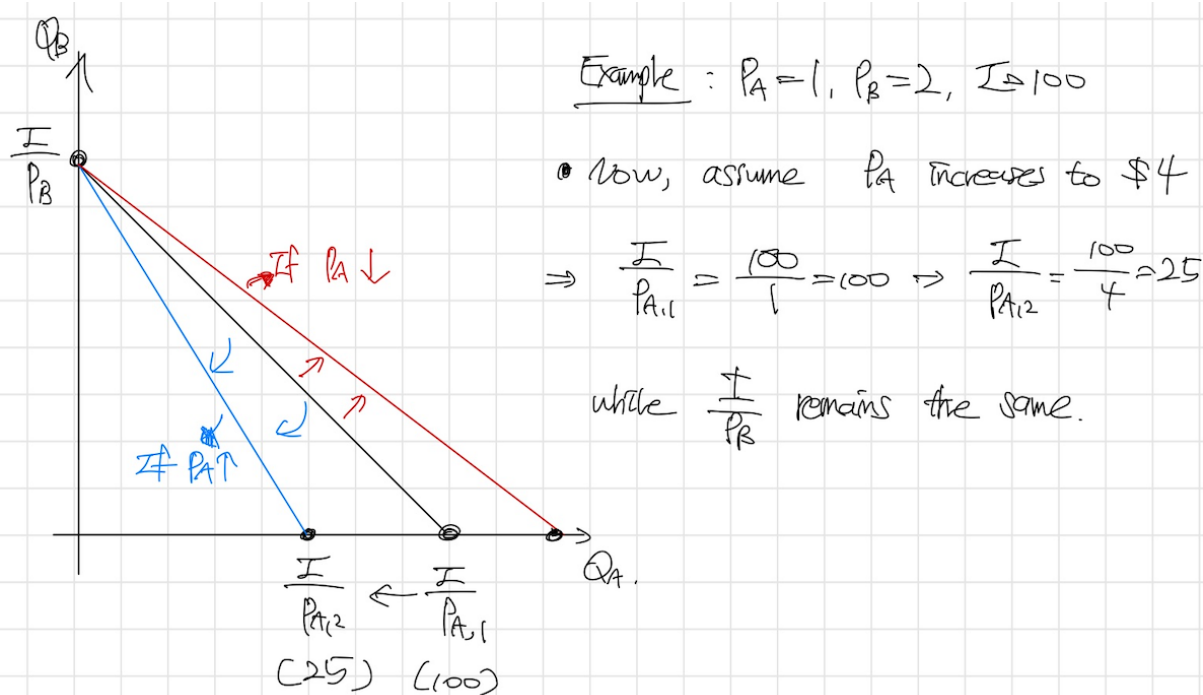 Q_B
I/P_B
If P_A ↓
If P_A ↑
I/P_A,2 ← I/P_A,1
(25) (100)
Q_A.
Example : P_A = 1, P_B = 2, I = 100
• Now, assume P_A increases to $4
⇒ I/P_A,1 = 100/1 = 100 ⇒ I/P_A,2 = 100/4 = 25
while I/P_B remains the same.